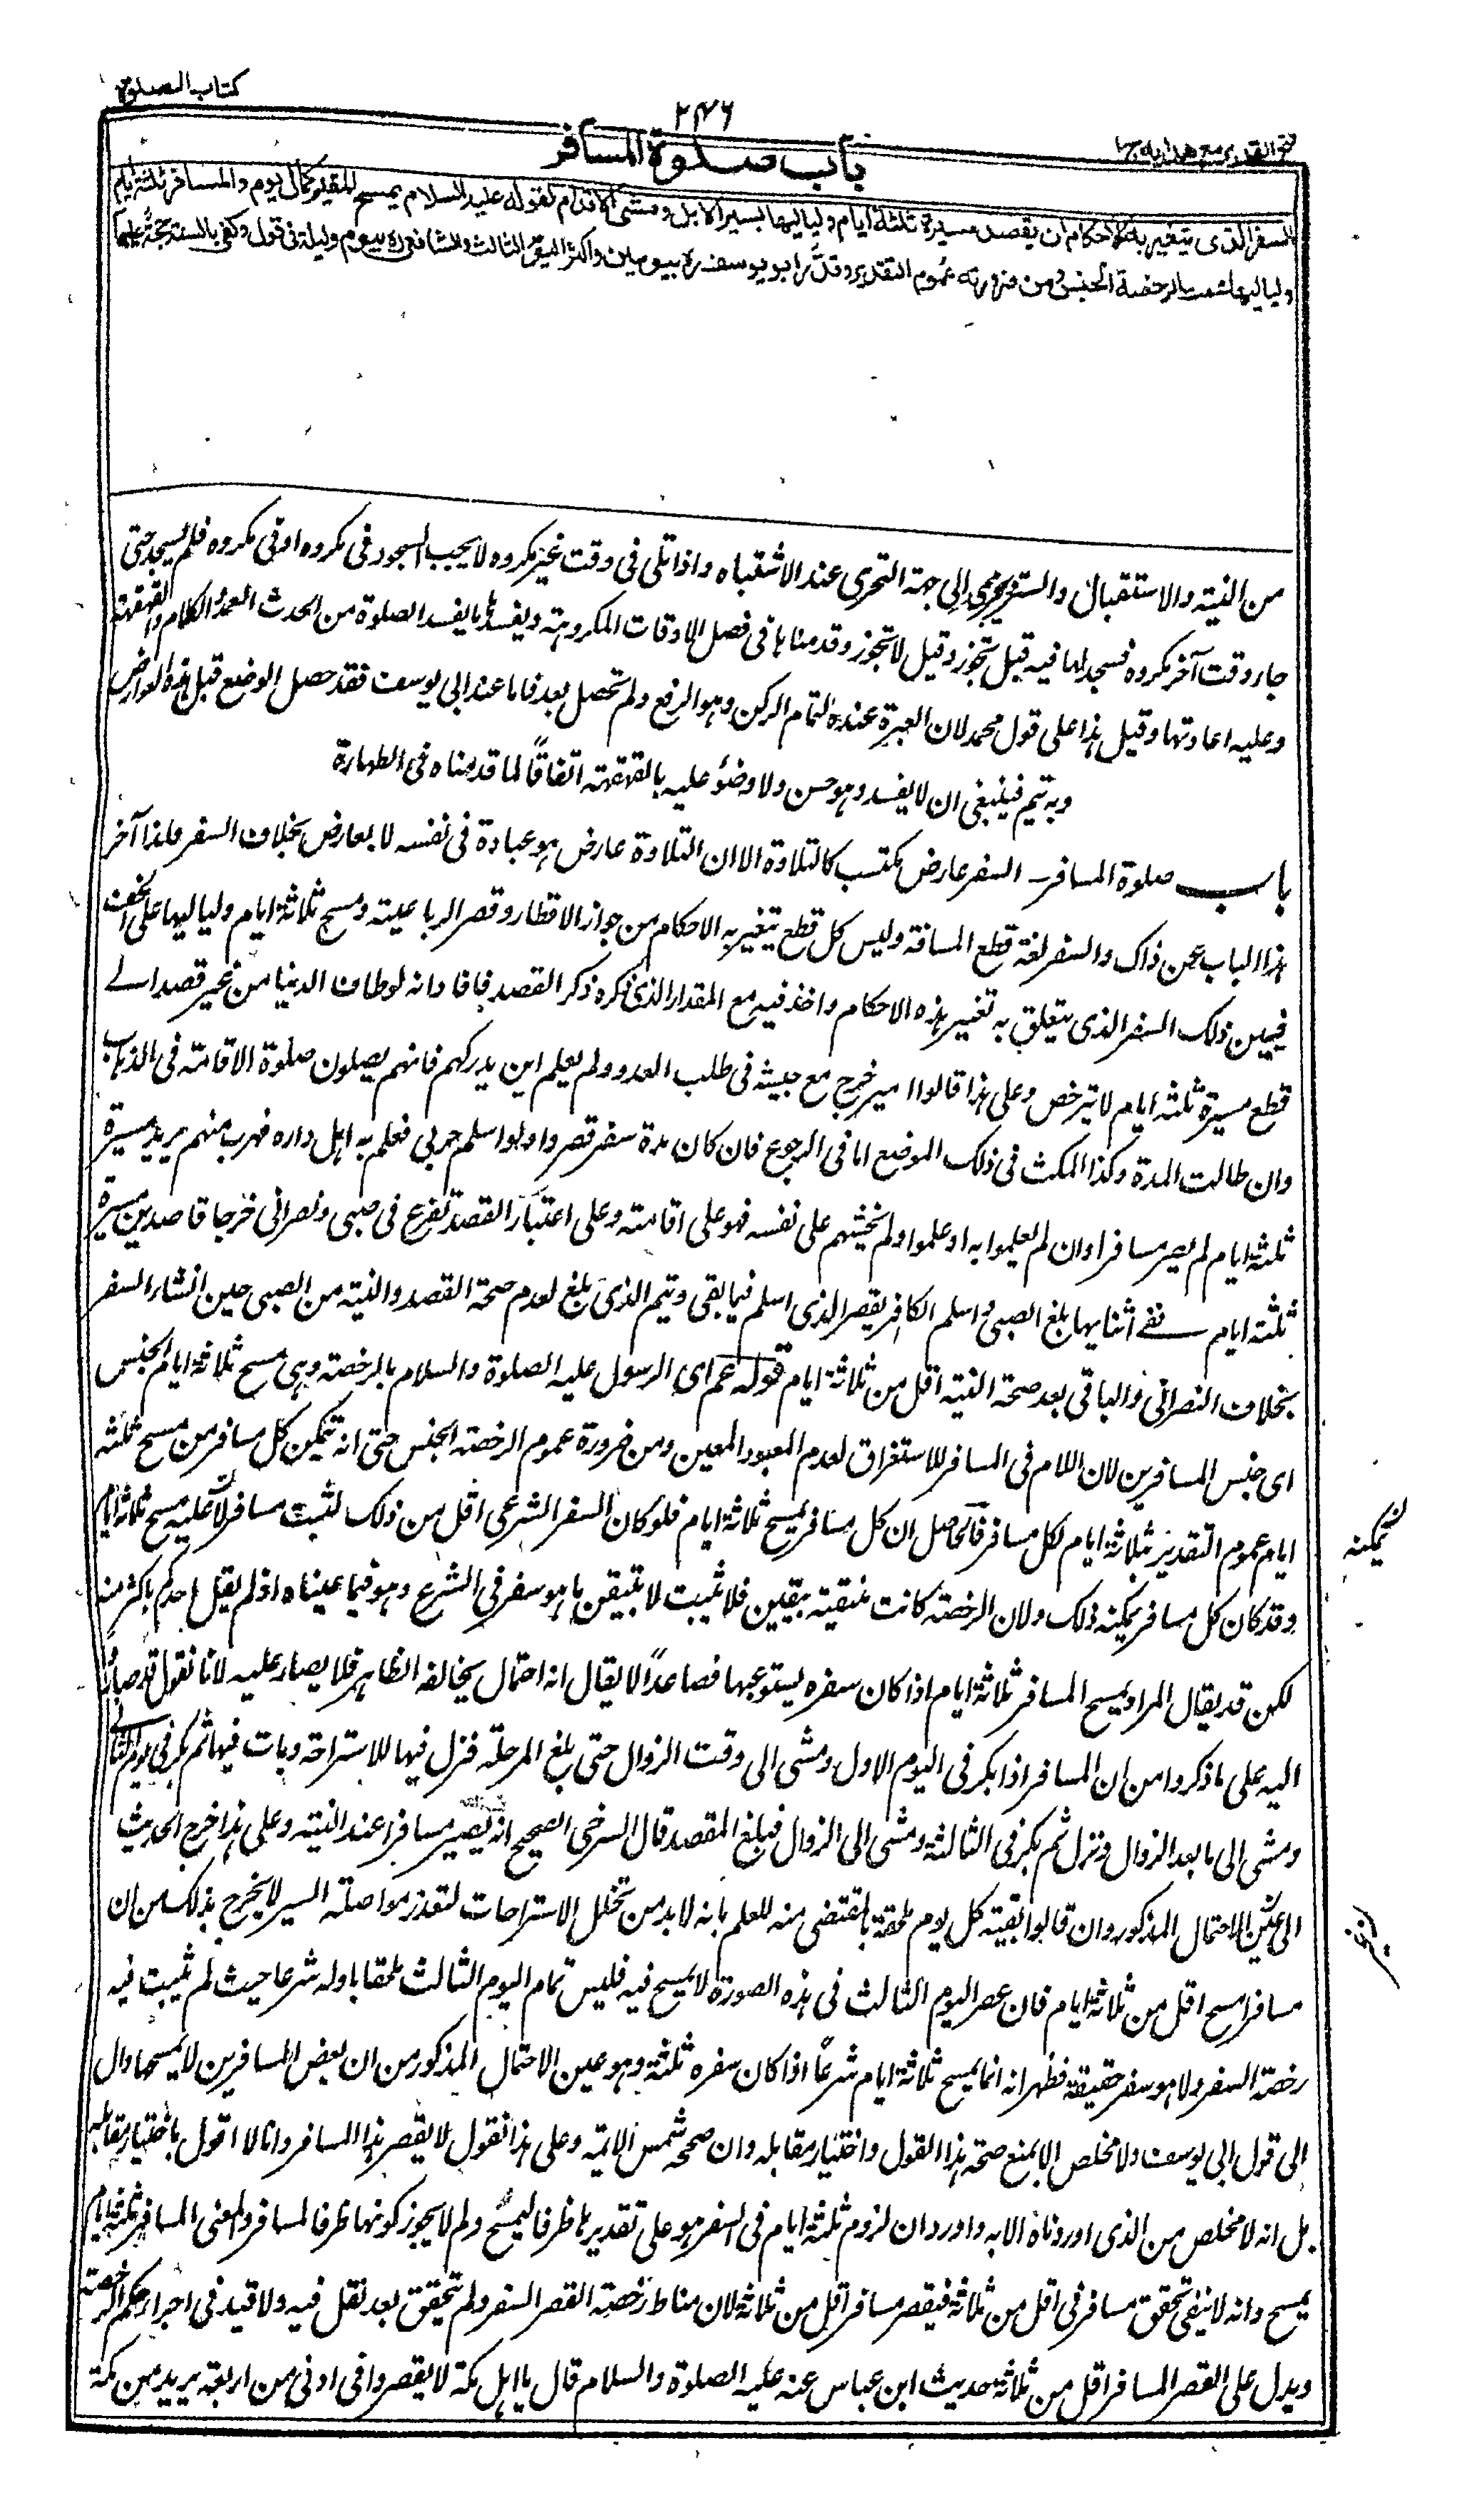 كتاب الصلوة
۲۴۶
فتح القدير مع هدايه ج۱
باب صلوة المسافر
السفر الذى يتغير به الاحكام ان يقصد مسيرة ثلثة ايام ولياليها بسير الابل ومشى الاقدام لقوله عليه السلام يمسح المقيم كمال يوم والمسافر ثلثة ايام
ولياليها عمت الرخصة الجنس ومن ضرورته عموم التقدير وقدر ابو يوسف ره بيومين واكثر اليوم الثالث والشافعى ره بيوم وليلة فى قول وكفى بالسنة حجة عليهما
من النية والاستقبال والستر ويجزى الى جهة التحرى عند الاشتباه واذا تلى فى وقت غير مكروه لا يجب السجود فى مكروه او فى مكروه فلم يسجد حتى
جاء وقت آخر مكروه فسجد لها فيه قيل تجوز وقيل لا تجوز وقد منا ها فى فصل الاوقات المكروهة ويفسدها ما يفسد الصلوة من الحدث العمد والكلام والقهقهة
وعليه اعادتها وقيل هذا على قول محمد لان العبرة عنده لتمام الركن وهو الرفع ولم تحصل بعد فاما عند ابى يوسف فقد حصل الوضع قبل هذه العوارض
وبه تتم فينبغى ان لا يفسد وهو حسن ولا وضوء عليه بالقهقهة اتفاقًا لما قدمناه فى الطهارة
باب صلوة المسافر السفر عارض مكتسب كالتلاوة الا ان التلاوة عارض هو عبادة فى نفسه لا بعارض بخلاف السفر فلذا آخر
هذا الباب عن ذاك والسفر لغة قطع المسافة وليس كل قطع يتغير به الاحكام من جواز الافطار وقصر الرباعية ومسح ثلاثة ايام ولياليها على الخف
فبين ذلك السفر الذى يتعلق به تغيير هذه الاحكام واخذ فيه مع المقدار الذى ذكره ذكر القصد فافاد انه لو طاف الدنيا من غير قصد الى
قطع مسيرة ثلثة ايام لا يترخص وعلى هذا قالوا امير خرج مع جيشه فى طلب العدو ولم يعلم اين يدركهم فانهم يصلون صلوة الاقامة فى الذهاب
وان طالت المدة وكذا المكث فى ذلك الموضع اما فى الرجوع فان كان مدة سفر قصروا ولو اسلم حربى فعلم به اهل داره فهرب منهم يريد مسيرة
ثلثة ايام لم يصر مسافرا وان لم يعلموا به او علموا ولم يخشهم على نفسه فهو على اقامته وعلى اعتبار القصد تفرع فى صبى ونصرانى خرجا قاصدين مسيرة
ثلثة ايام ففى اثنايها بلغ الصبى واسلم الكافر يقصر الذى اسلم فيما بقى ويتم الذى بلغ لعدم صحة القصد والنية من الصبى حين انشاء السفر
بخلاف النصرانى والباقى بعد صحة النية اقل من ثلاثة ايام قوله عم اى الرسول عليه الصلوة والسلام بالرخصة وهى مسح ثلاثة ايام الجنس
اى جنس المسافرين لان اللام فى المسافر للاستغراق لعدم المعهود المعين ومن ضرورة عموم الرخصة الجنس حتى انه يتمكن كل مسافر من مسح ثلثة
ايام عموم التقدير بثلاثة ايام لكل مسافر فالحاصل ان كل مسافر يمسح ثلاثة ايام فلو كان السفر الشرعى اقل من ذلك لثبت مسافر لا عليه مسح ثلاثة ايام
لا يمكنه
وقد كان كل مسافر يمكنه ذلك ولان الرخصة كانت منتفية بيقين فلا تثبت الا بتيقن ما هو سفر فى الشرع وهو فيما عيناه اذ لم يقل احد باكثر منه
لكن قد يقال المراد يمسح المسافر ثلاثة ايام اذا كان سفره يستوعبها فصاعدًا لا يقال انه احتمال يخالفه الظاهر فلا يصار عليه لانا نقول قد صاروا
اليه على ما ذكروا من ان المسافر اذا بكر فى اليوم الاول ومشى الى وقت الزوال حتى بلغ المرحلة فنزل فيها للاستراحة وبات فيها ثم بكر فى اليوم الثانى
ومشى الى ما بعد الزوال ونزل ثم بكر فى الثالثة ومشى الى الزوال فبلغ المقصد قال السرخى الصحيح انه يصير مسافرا عند النية وعلى هذا خرج الحديث
الى غير الاحتمال المذكور وان قالوا بقية كل يوم ملحقة بالمنقضى منه للعلم بانه لا بد من تخلل الاستراحات لتعذر مواصلة السير لا يخرج بذلك من ان
مسافرا مسح اقل من ثلاثة ايام فان عصر اليوم الثالث فى هذه الصورة لا يمسح فيه فليس تمام اليوم الثالث ملحقا باوله شرعا حيث لم تثبت فيه
رخصة السفر ولا هو سفر حقيقة فظهر انه انما يمسح ثلاثة ايام شرعًا اذا كان سفره ثلثة وهو عين الاحتمال المذكور من ان بعض المسافرين لا يمسحها وآل
الى قول ابى يوسف ولا مخلص الا بمنع صحة هذا القول واختيار مقابله وان صححه شمس الائمة وعلى هذا نقول لا يقصر هذا المسافر وانا لا اقول باختيار مقابله
بل انه لا مخلص من الذى اوردناه الا به واورد ان لزوم ثلثة ايام فى السفر هو على تقديرها ظرفا ليمسح ولم لا يجوز كونها ظرفا لمسافر والمعنى المسافر ثلثة ايام
يمسح وانه لا ينفى تحقق مسافر فى اقل من ثلاثة فيقصر مسافر اقل من ثلاثة لان مناط رخصة القصر السفر ولم يتحقق بعد نقل فيه ولا قيد فى اجراء حكم الرخصة
ويدل على القصر المسافر اقل من ثلاثة حديث ابن عباس عنه عليه الصلوة والسلام قال يا اهل مكة لا يقصروا فى ادنى من اربعة بريد من مكة